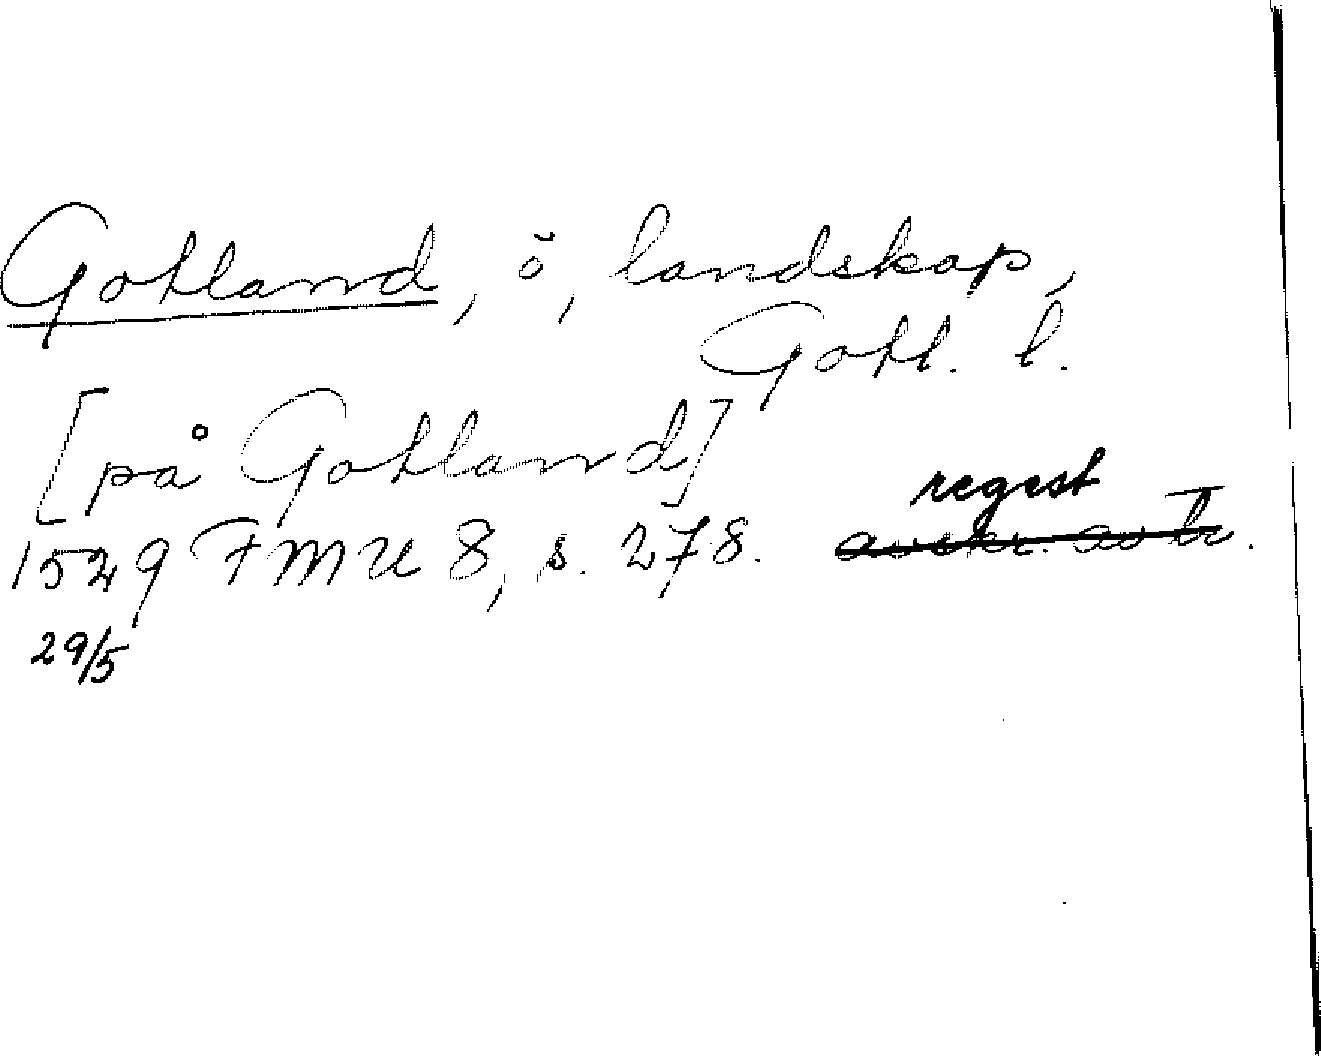 Gotland, ö, landskap,
Gotl. l.
[på Gotland]
regest
1529 FMU 8, s. 278. avskr. av tr.
29/5